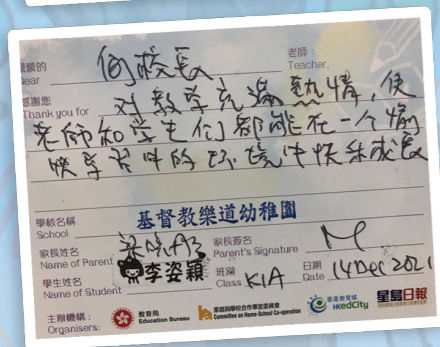 親愛的 何校長 老師：
Dear Teacher,
感謝您
Thank you for 對教學充滿熱情，使
老師和學生們都能在一个愉
快學習的环境中快乐成長
學校名稱
School 基督教樂道幼稚園
家長姓名 家長簽名
Name of Parent Parent's Signature
學生姓名 李姿穎 班別 日期
Name of Student Class K1A Date 14 Dec 2021
主辦機構：
Organisers:
教育局
Education Bureau
家庭與學校合作事宜委員會
Committee on Home-School Co-operation
香港教育城
HKedCity
星島日報